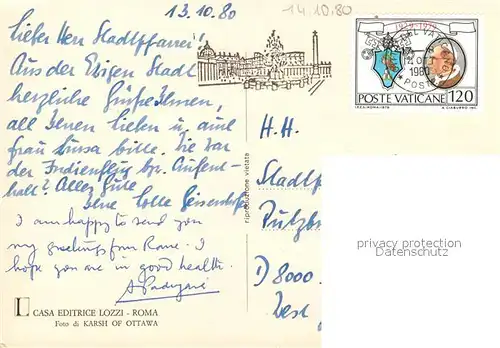 13.10.80
14.10.80
Lieber Herr Stadtpfarrer!
Aus der Ewigen Stadt
herzliche Grüße Ihnen,
all Ihren Lieben u. auch
Frau bitte. Wie war
der Indienflug bzw. Aufent-
halt? Alles Gute
Ihre Lotte
I am happy to send you
my greetings from Rome. I
hope you are in good health.
CASA EDITRICE LOZZI - ROMA
Foto di KARSH OF OTTAWA
riproduzione vietata
1979-1979
POSTE VATICANE 120
1980
POSTE
H. H.
Stadtpf
D 8000
West
privacy protection
Datenschutz